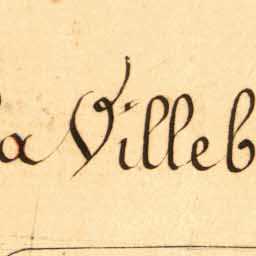 la Villeb